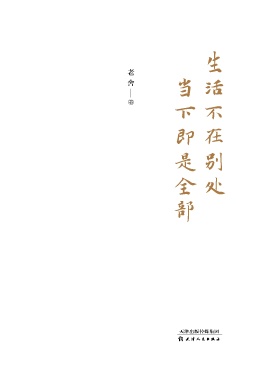 生活不在别处
当下即是全部
老舍——著
天津出版传媒集团
天津人民出版社